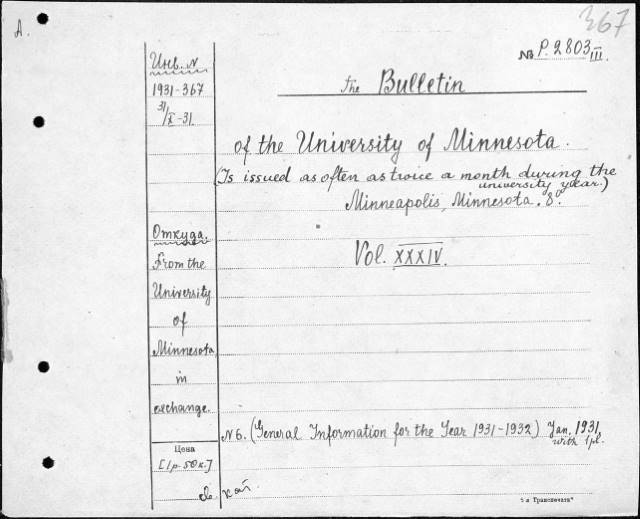 367
A.
№ P. 2803 III.
the Bulletin
of the University of Minnesota.
(Is issued as often as twice a month during the
university year.)
Minneapolis, Minnesota. 8°.
Vol. XXXIV.
Инв. N
1931-367
31/X-31.
Откуда.
From the
University
of
Minnesota
in
exchange.
Цена
[1р. 50к.]
N 6. (General Information for the Year 1931-1932) Jan. 1931.
with 1pl.
5-я Транспечать"